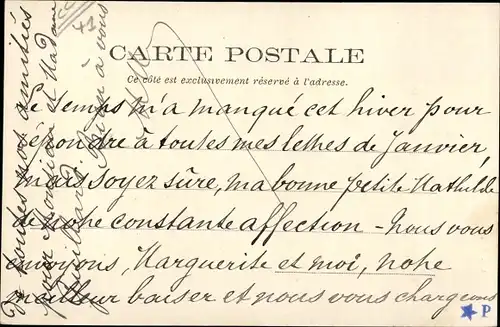 CARTE POSTALE
Ce côté est exclusivement réservé à l'adresse.
Le temps m'a manqué cet hiver pour
répondre à toutes mes lettres de Janvier,
mais soyez sûre, ma bonne petite Mathilde
de notre constante affection - Nous vous
envoyons, Marguerite et moi, notre
meilleur baiser et nous vous chargeons
de toutes nos amitiés
pour Monsieur et Madame
Bien à vous
41
P